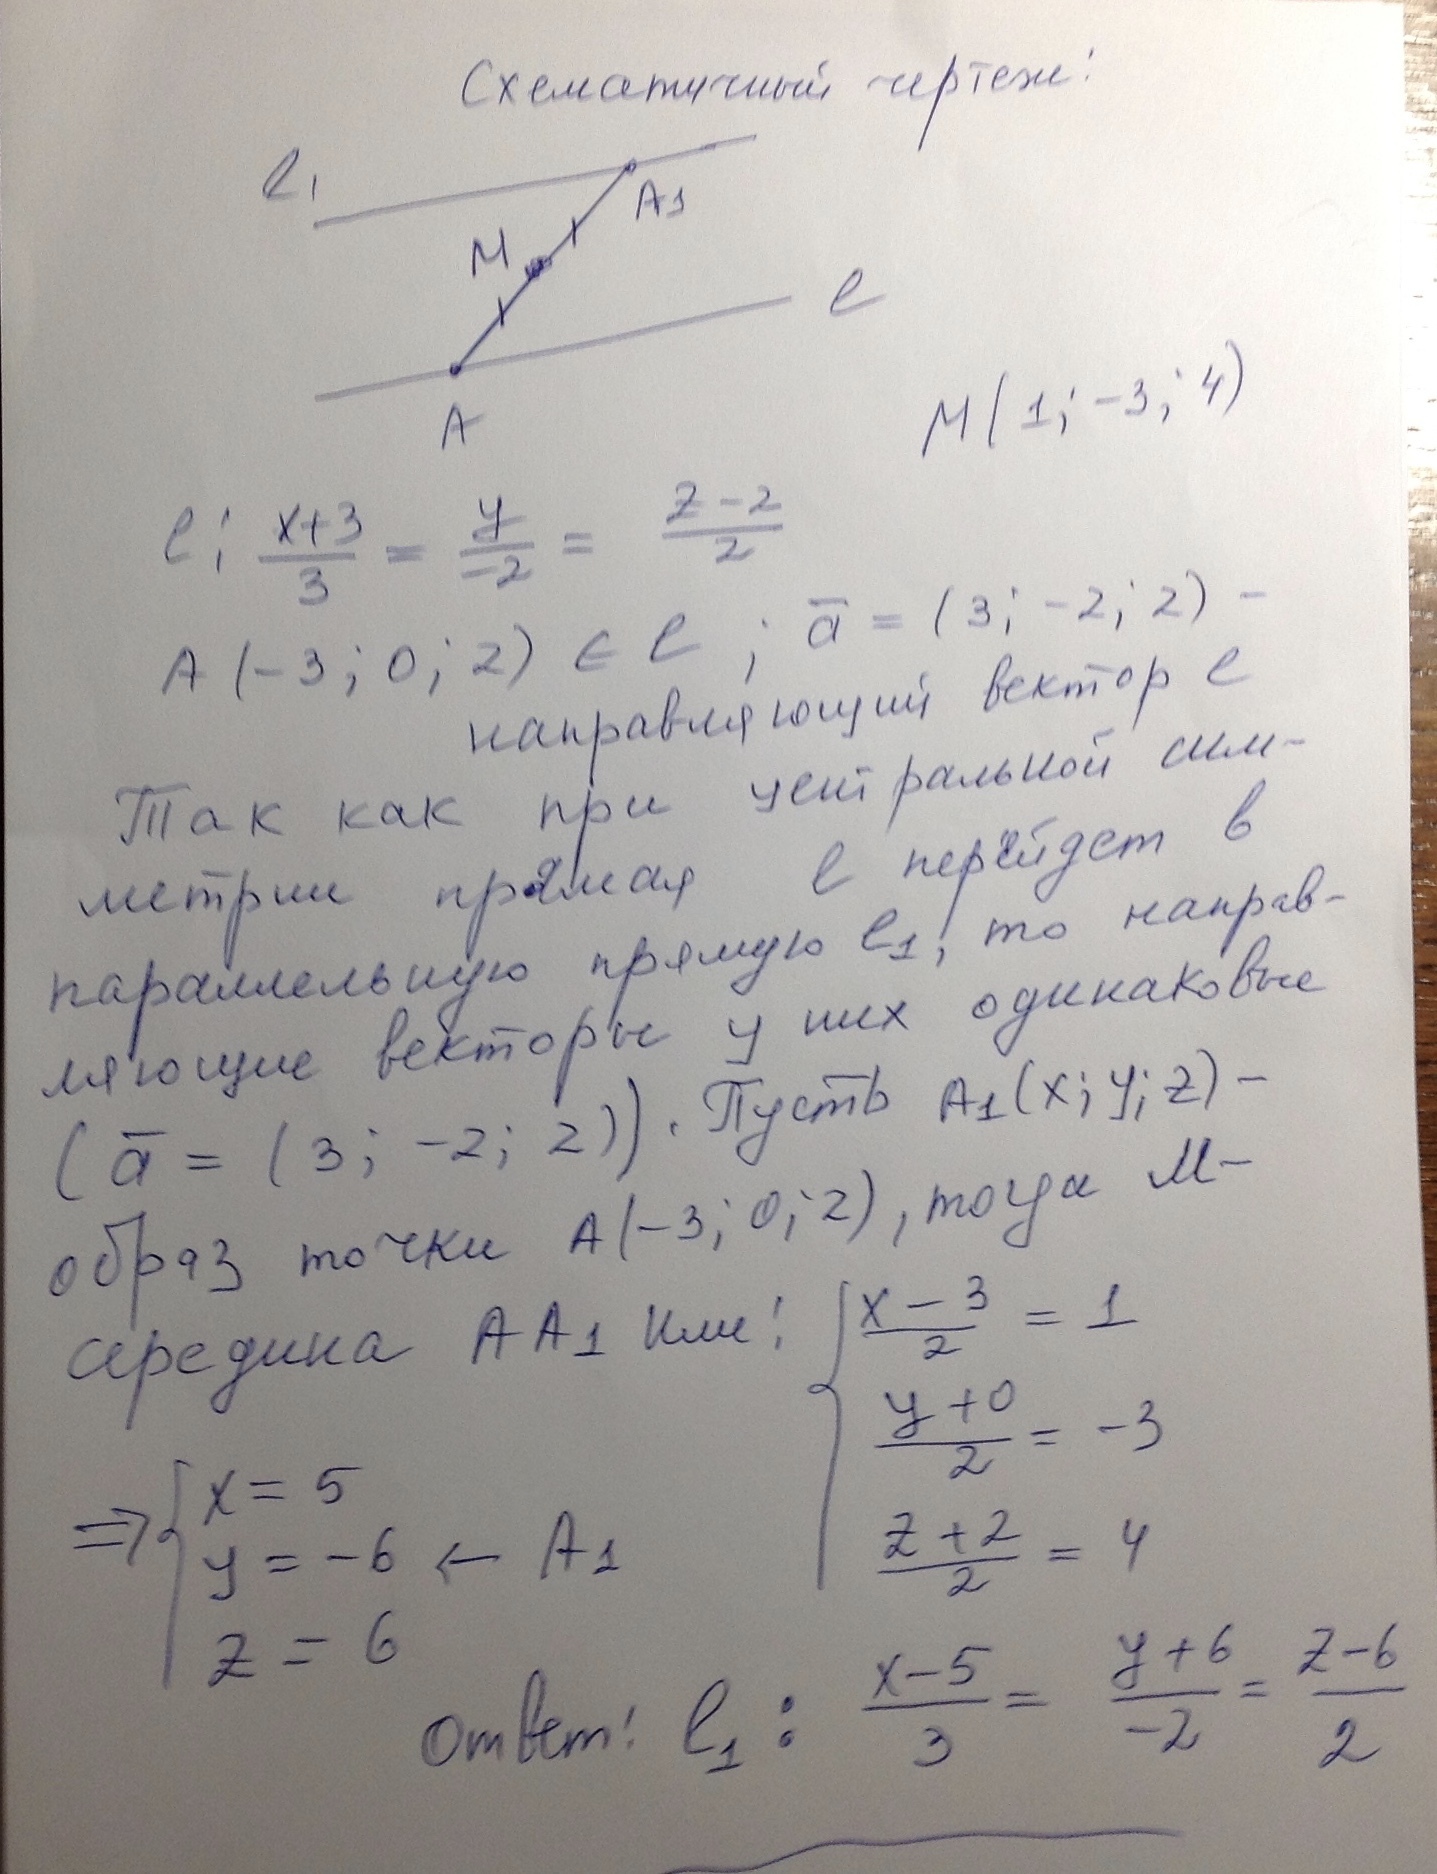 Схематичный чертеж:
l₁
A₁
M
l
A
M(1; -3; 4)
l: (x+3)/3 = y/(-2) = (z-2)/2
A(-3; 0; 2) ∈ l ; a̅ = (3; -2; 2) -
направляющий вектор l
Так как при центральной сим-
метрии прямая l перейдет в
параллельную прямую l₁, то направ-
ляющие векторы у них одинаковые
(a̅ = (3; -2; 2)). Пусть A₁(x; y; z) -
образ точки A(-3; 0; 2), тогда M -
середина AA₁ или: { (x-3)/2 = 1
(y+0)/2 = -3
(z+2)/2 = 4
⇒ { x = 5
y = -6 ← A₁
z = 6
Ответ: l₁ : (x-5)/3 = (y+6)/(-2) = (z-6)/2